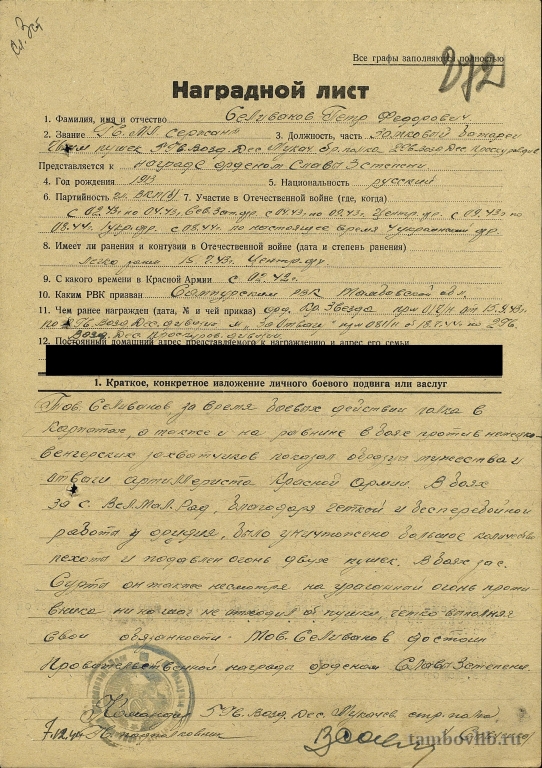 Все графы заполняются полностью
272
Наградной лист
1. Фамилия, имя и отчество Селиванов Петр Федорович
2. Звание Гв. мл. сержант 3. Должность, часть Замковый батареи
пушек Гв. Возд. Дес. полка Возд. Дес.
Представляется к награде орденом Славы 3 степени
4. Год рождения 1913 5. Национальность русский
6. Партийность чл. ВКП(б) 7. Участие в Отечественной войне (где, когда)
с 02.43 по 04.43, Сев. Зап. фр. с 04.43 по 09.43 Центр. фр. с 09.43 по
08.44 1 укр. фр. с 08.44 по настоящее время 4 украинский фр.
8. Имеет ли ранения и контузии в Отечественной войне (дата и степень ранения)
Легко ранен 15.7.43 Центр. фр.
9. С какого времени в Красной Армии с 02.42г.
10. Каким РВК призван Сампурским РВК Тамбовской обл.
11. Чем ранее награжден (дата, N и чей приказ) орд. Кр. Звезда
Гв. Возд. Дес. дивизии м. "За Отвагу"
Возд. Дес. дивизии
12. Постоянный домашний адрес представляемого к награждению и адрес его семьи
1. Краткое, конкретное изложение личного боевого подвига или заслуг
Тов. Селиванов за время боевых действий полка в
Карпатах, а также и на равнине в боях против немецко-
венгерских захватчиков показал образцы мужества и
отваги артиллериста Красной Армии. В боях
за с. Вел. Мал. Рад, благодаря четкой и бесперебойной
работа у орудия, было уничтожено большое количество
пехоты и подавлен огонь двух пушек. В боях за с.
Сурта он также несмотря на ураганный огонь проти
вника ни на шаг не отходил от пушки, четко выполняя
свои обязанности. Тов. Селиванов достоин
Правительственной награда орденом Слава 3 степени.
Командир 5 Гв. Возд. Дес. Мукачев. стр. полка
7.12.44 Гв. подполковник
tambovlib.ru